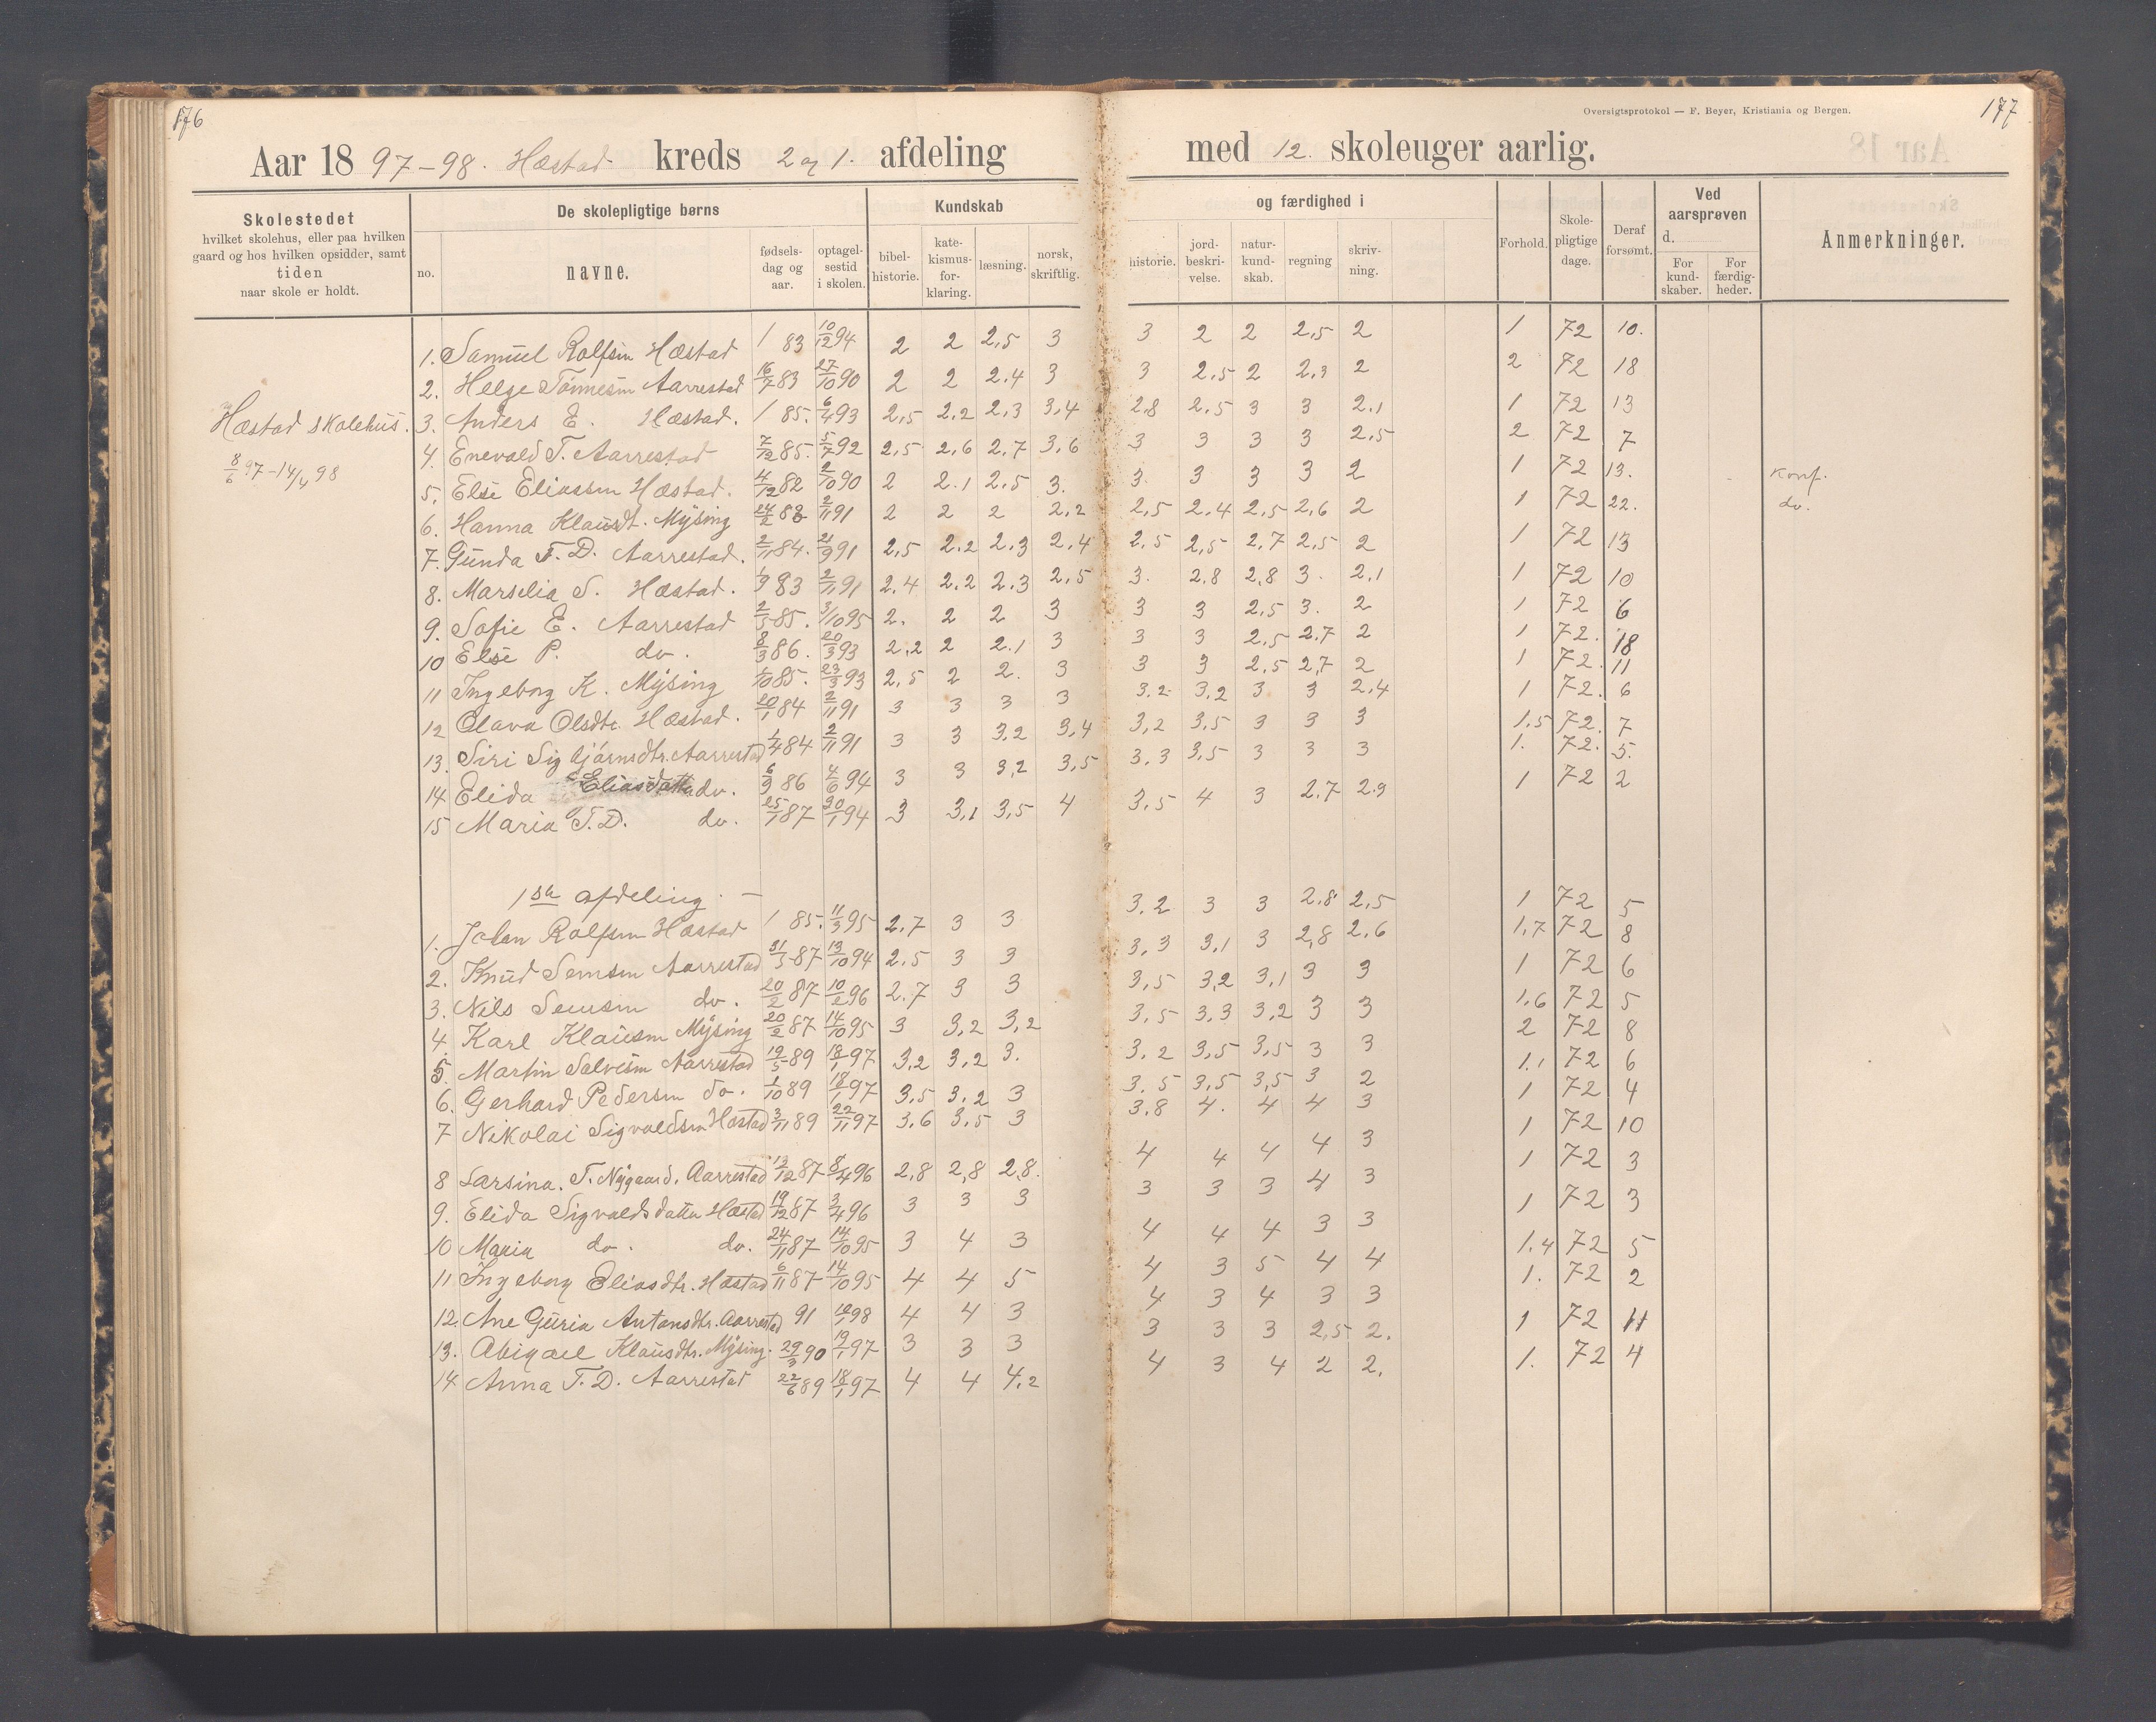 176
Oversigtsprotokol — F. Beyer, Kristiania og Bergen.
177
Aar 1897-98. Hæstad kreds 2 og 1. afdeling med 12. skoleuger aarlig.
Skolestedet hvilket skolehus, eller paa hvilken gaard og hos hvilken opsidder, samt tiden naar skole er holdt.
De skolepligtige børns
no. navne. fødselsdag og aar. optagelsestid i skolen.
Kundskab og færdighed i
bibelhistorie. katekismusforklaring. læsning. norsk, skriftlig. historie. jordbeskrivelse. naturkundskab. regning skrivning.
Forhold. Skolepligtige dage. Deraf forsømt.
Ved aarsprøven d.
For kundskaber. For færdigheder.
Anmerkninger.
Hæstad skolehus.
8/6 97-14/4 98
1. Samuel Rolfsen Hæstad 1 83 10/12 94 2 2 2,5 3 3 2 2 2,5 2 1 72 10.
2. Helge Tønnesen Aarrestad 16/7 83 27/10 90 2 2 2.4 3 3 2,5 2 2,3 2 2 72 18
3. Anders E. Hæstad. 1 85. 6/4 93 2,5 2,2 2,3 3,4 2,8 2,5 3 3 2.1 1 72 13
4. Enevald T. Aarrestad 7/12 85. 5/7 92 2,5 2,6 2,7 3,6 3 3 3 3 2,5 2 72 7
5. Else Eliassen Hæstad. 4/12 82 2/10 90 2 2.1 2.5 3. 3. 3 3 3 2 1 72 13. Konf.
6. Hanna Klausdt. Mÿsing 24/2 83 2/11 91 2 2 2 2,2 2,5 2.4 2,5 2,6 2 1 72 22. do.
7. Gunda T. D. Aarrestad. 2/11 84. 21/9 91 2,5 2.2 2.3 2.4 2.5 2,5 2.7 2,5 2 1 72 13
8. Marselia S. Hæstad. 1/9 83 2/11 91 2.4 2.2 2.3 2,5 3. 2.8 2,8 3. 2.1 1 72 10
9. Sofie E. Aarrestad 2/5 85. 3/10 95 2. 2 2 3 3 3 2,5 3. 2 1 72 6
10 Else P. do. 8/3 86. 20/3 93 2,2 2 2.1 3 3 3 2,5 2.7 2 1 72. 18
11 Ingeborg K. Mÿsing 1/10 85. 23/3 93 2,5 2 2. 3 3 3 2.5 2,7 2 1 72. 11
12 Olava Olsdtr. Hæstad. 20/1 84 2/11 91 3 3 3 3 3,2 3,2 3 3 2.4 1 72. 6
13. Siri Sigbjørnsdtr. Aarrestad 1/4 84 2/11 91 3 3 3,2 3,4 3,2 3,5 3 3 3 1.5 72. 7
14 Elida Eliasdatter do. 6/9 86 4/6 94 3 3 3,2 3,5 3.3 3,5 3 3 3 1. 72. 5.
15 Maria T. D. do. 25/1 87 30/1 94 3 3,1 3,5 4 3.5 4 3 2.7 2.9 1 72 2
1ste afdeling.
1. Johan Rolfsen Hæstad 1 85. 11/3 95 2.7 3 3 3.2 3 3 2,8 2,5 1 72 5
2. Knud Semsen Aarrestad 31/5 87 13/10 94 2.5 3 3 3,3 3,1 3 2,8 2.6 1,7 72 8
3. Nils Semsen do. 20/2 87 10/2 96 2.7 3 3 3,5 3,2 3,1 3 3 1 72 6
4. Karl Klausen Mÿsing 20/2 87 14/10 95 3 3,2 3,2 3.5 3.3 3,2 3 3 1.6 72 5
5. Martin Salvesen Aarrestad 19/5 89 18/1 97 3,2 3,2 3. 3,2 3,5 3,5 3 3 2 72 8
6. Gerhard Pedersen do. 1/10 89 18/1 97 3.5 3.2 3 3.5 3,5 3,5 3 2 1.1 72 6
7 Nikolai Sigvaldsen Hæstad 3/11 89 22/11 97 3.6 3.5 3 3.8 4. 4 4 3 1 72 4
8 Larsina. T. Nÿgaard. Aarrestad 13/12 87 8/4 96 2,8 2,8 2,8. 4 4 4 4 3 1 72 10
9. Elida Sigvaldsdatter Hæstad 19/12 87 3/4 96 3 3 3 3 3 3 4 3 1 72 3
10 Maria do. do. 24/11 87 14/10 95 3 4 3 4 4 4 3 3 1 72 3
11 Ingeborg Eliasdtr. Hæstad 6/11 87 14/10 95 4 4 5 4 3 5 4 4 1.4 72 5
12. Ane Guria Antonsdtr. Aarrestad 91 10/1 98 4 4 3 4 3 4 3 3 1. 72 2
13. Abigael Klausdtr. Mÿsing. 29/3 90 19/1 97 3 3 3 3 3 3 2,5 2. 1 72 11
14 Anna T. D. Aarrestad 22/6 89 18/1 97 4 4 4.2 4 3 4 2 2. 1. 72 4